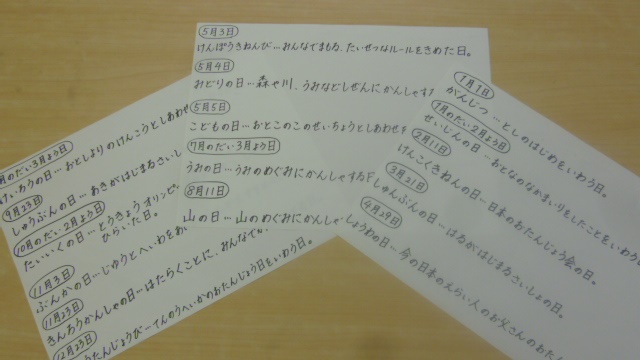 5月3日
けんぽうきねんび…みんなでまもる、たいせつなルールをきめた日。
5月4日
みどりの日…森や川、うみなどしぜんにかんしゃする
5月5日
こどもの日…おとこのこのせいちょうとしあわせ
7月のだい3月よう日
うみの日…うみのめぐみにかんしゃする
8月11日
山の日…山のめぐみにかんしゃ
1月1日
がんじつ…としのはじめをいわう日。
1月のだい2月よう日
せいじんの日…おとなのなかまいりをしたことをいわう
2月11日
けんこくきねんの日…日本のおたんじょう会の日。
3月21日
しゅんぶんの日…はるがはじまるさいしょの日。
4月29日
しょうわの日…今の日本のえらい人のお父さんのおた
月のだい3月よう日
けいろうの日…おとしよりのけんこうとしあわせ
9月23日
しゅうぶんの日…あきがはじまるさいし
10月のだい2月よう日
たいいくの日…とうきょうオリンピ
ひらいた日。
11月3日
ぶんかの日…じゆうとへいわをあ
11月23日
きんろうかんしゃの日…はたらくことに、みんなでか
12月23日
うたんじょうび…てんのうへいかのおたんじょう日をいわう日。